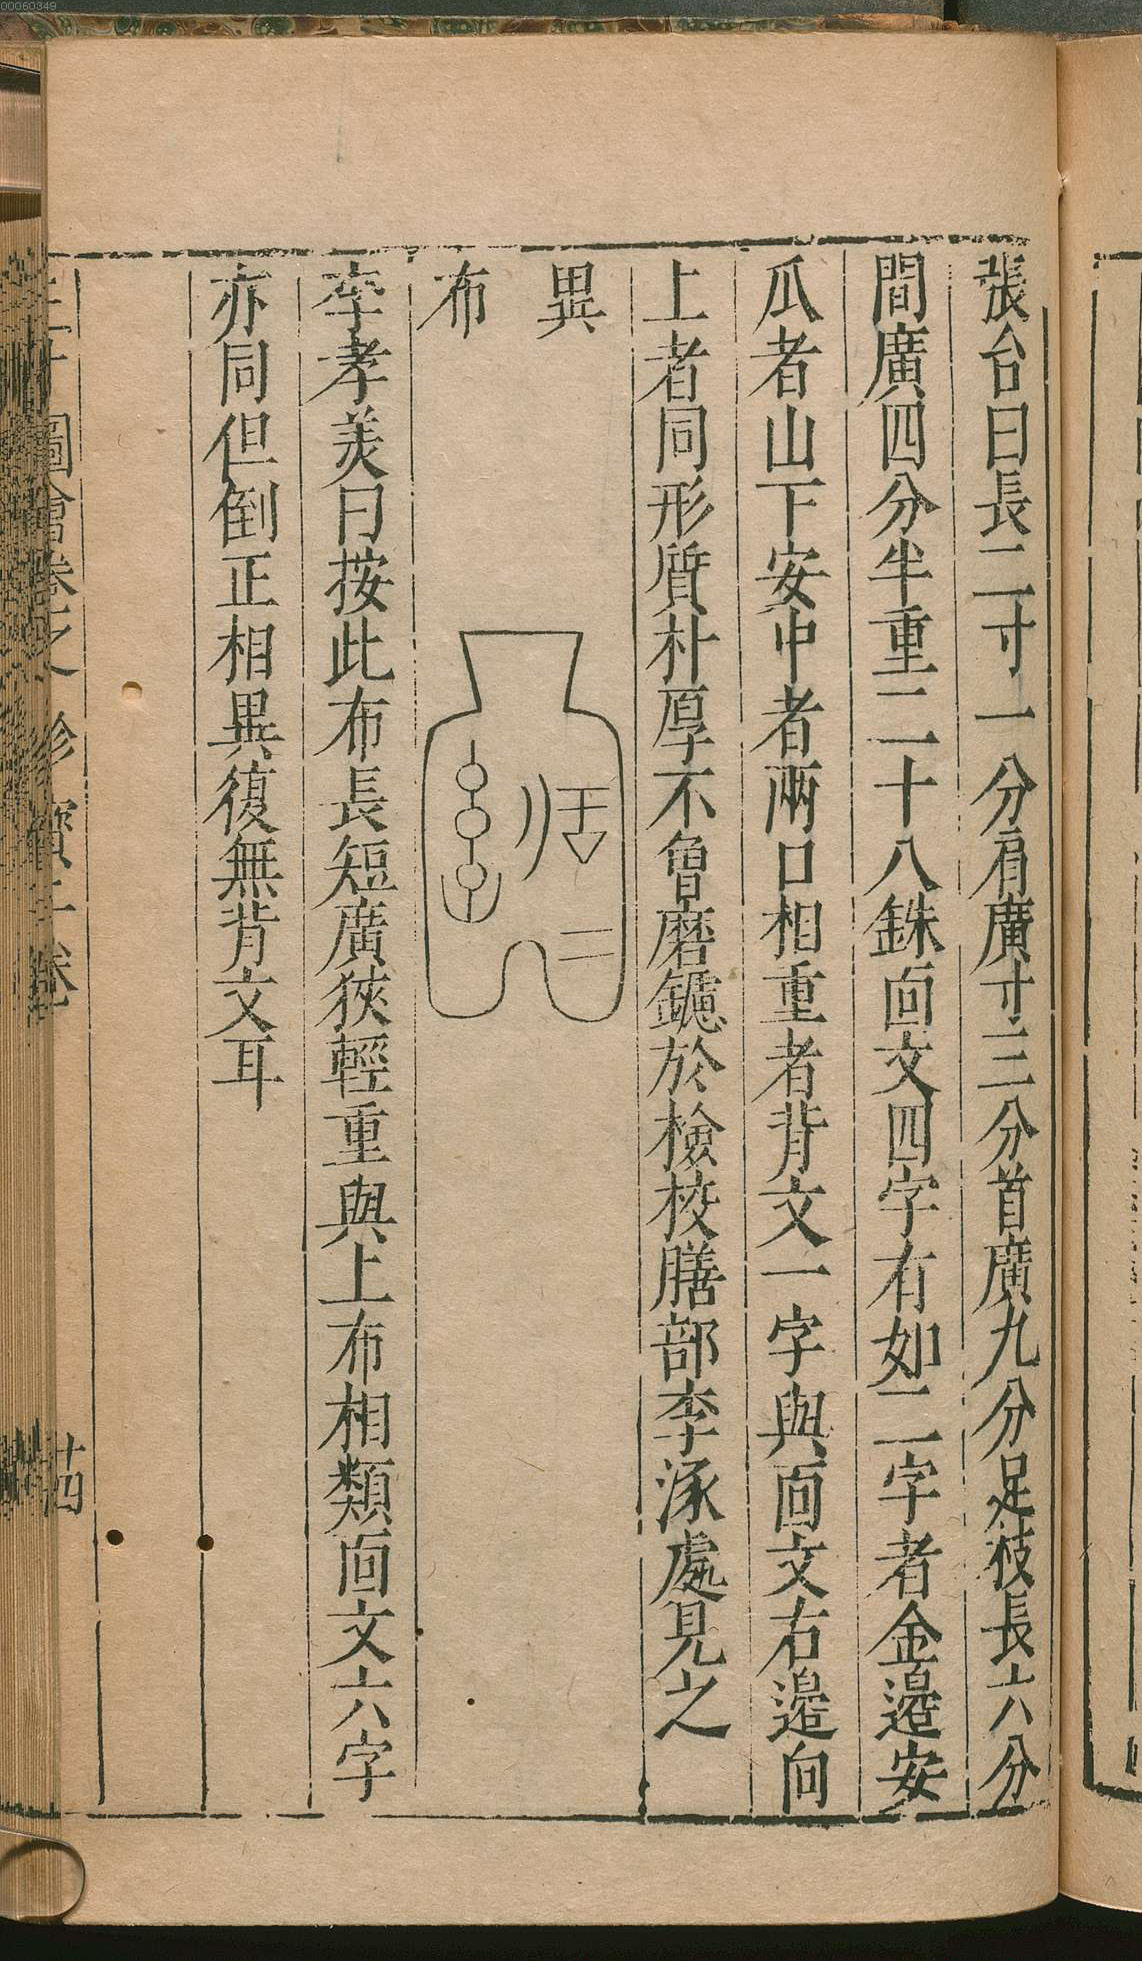 00060349
張台曰長二寸一分肩廣寸三分首廣九分足枝長六分
間廣四分半重二十八銖面文四字有如二字者金邊安
瓜者山下安中者兩口相重者背文一字與面文右邊向
上者同形質朴厚不曾磨鑢於檢校膳部李涿處見之
異
布
李孝美曰按此布長短廣狹輕重與上布相類面文六字
亦同但倒正相異復無背文耳
圖會卷之 珍寶二卷
十四